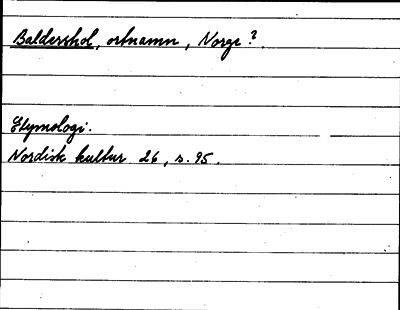 Baldershol, ortnamn, Norge?.
Etymologi.
Nordisk kultur 26, s. 95.